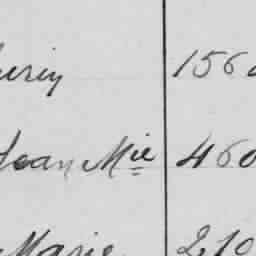 156
Jean Mie 460
Marie 210